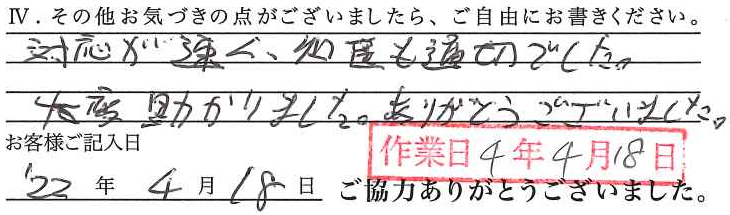 Ⅳ．その他お気づきの点がございましたら、ご自由にお書きください。
対応が速く、処置も適切でした。
大変助かりました。ありがとうございました。
お客様ご記入日
作業日4年4月18日
'22年4月18日 ご協力ありがとうございました。